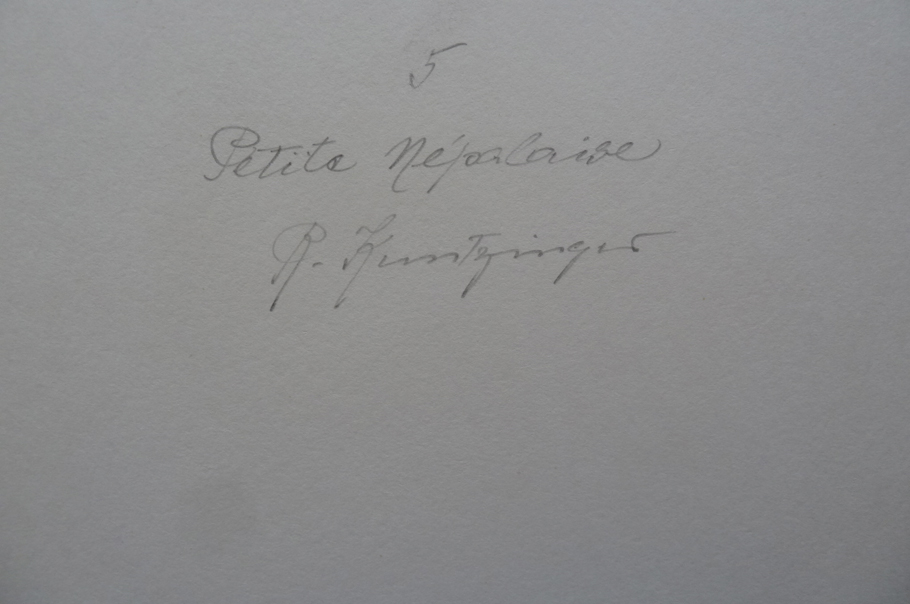 5
Petite Népalaise
R. Kuntzinger